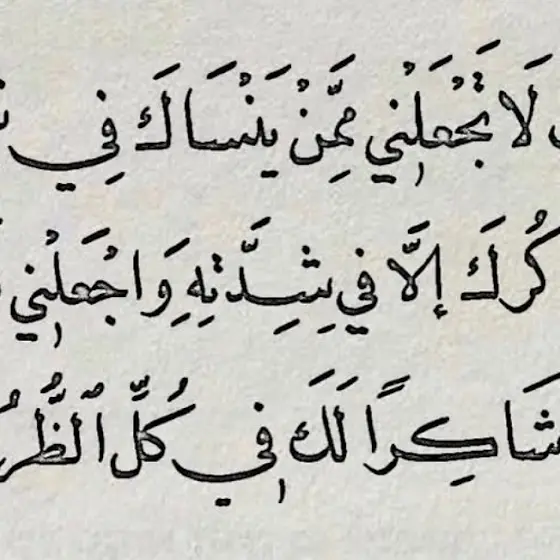 لَا تَجْعَلْنِي مِمَّنْ يَنْسَاكَ فِي
إِلَّا فِي شِدَّتِهِ وَاجْعَلْنِي
شَاكِرًا لَكَ فِي كُلِّ